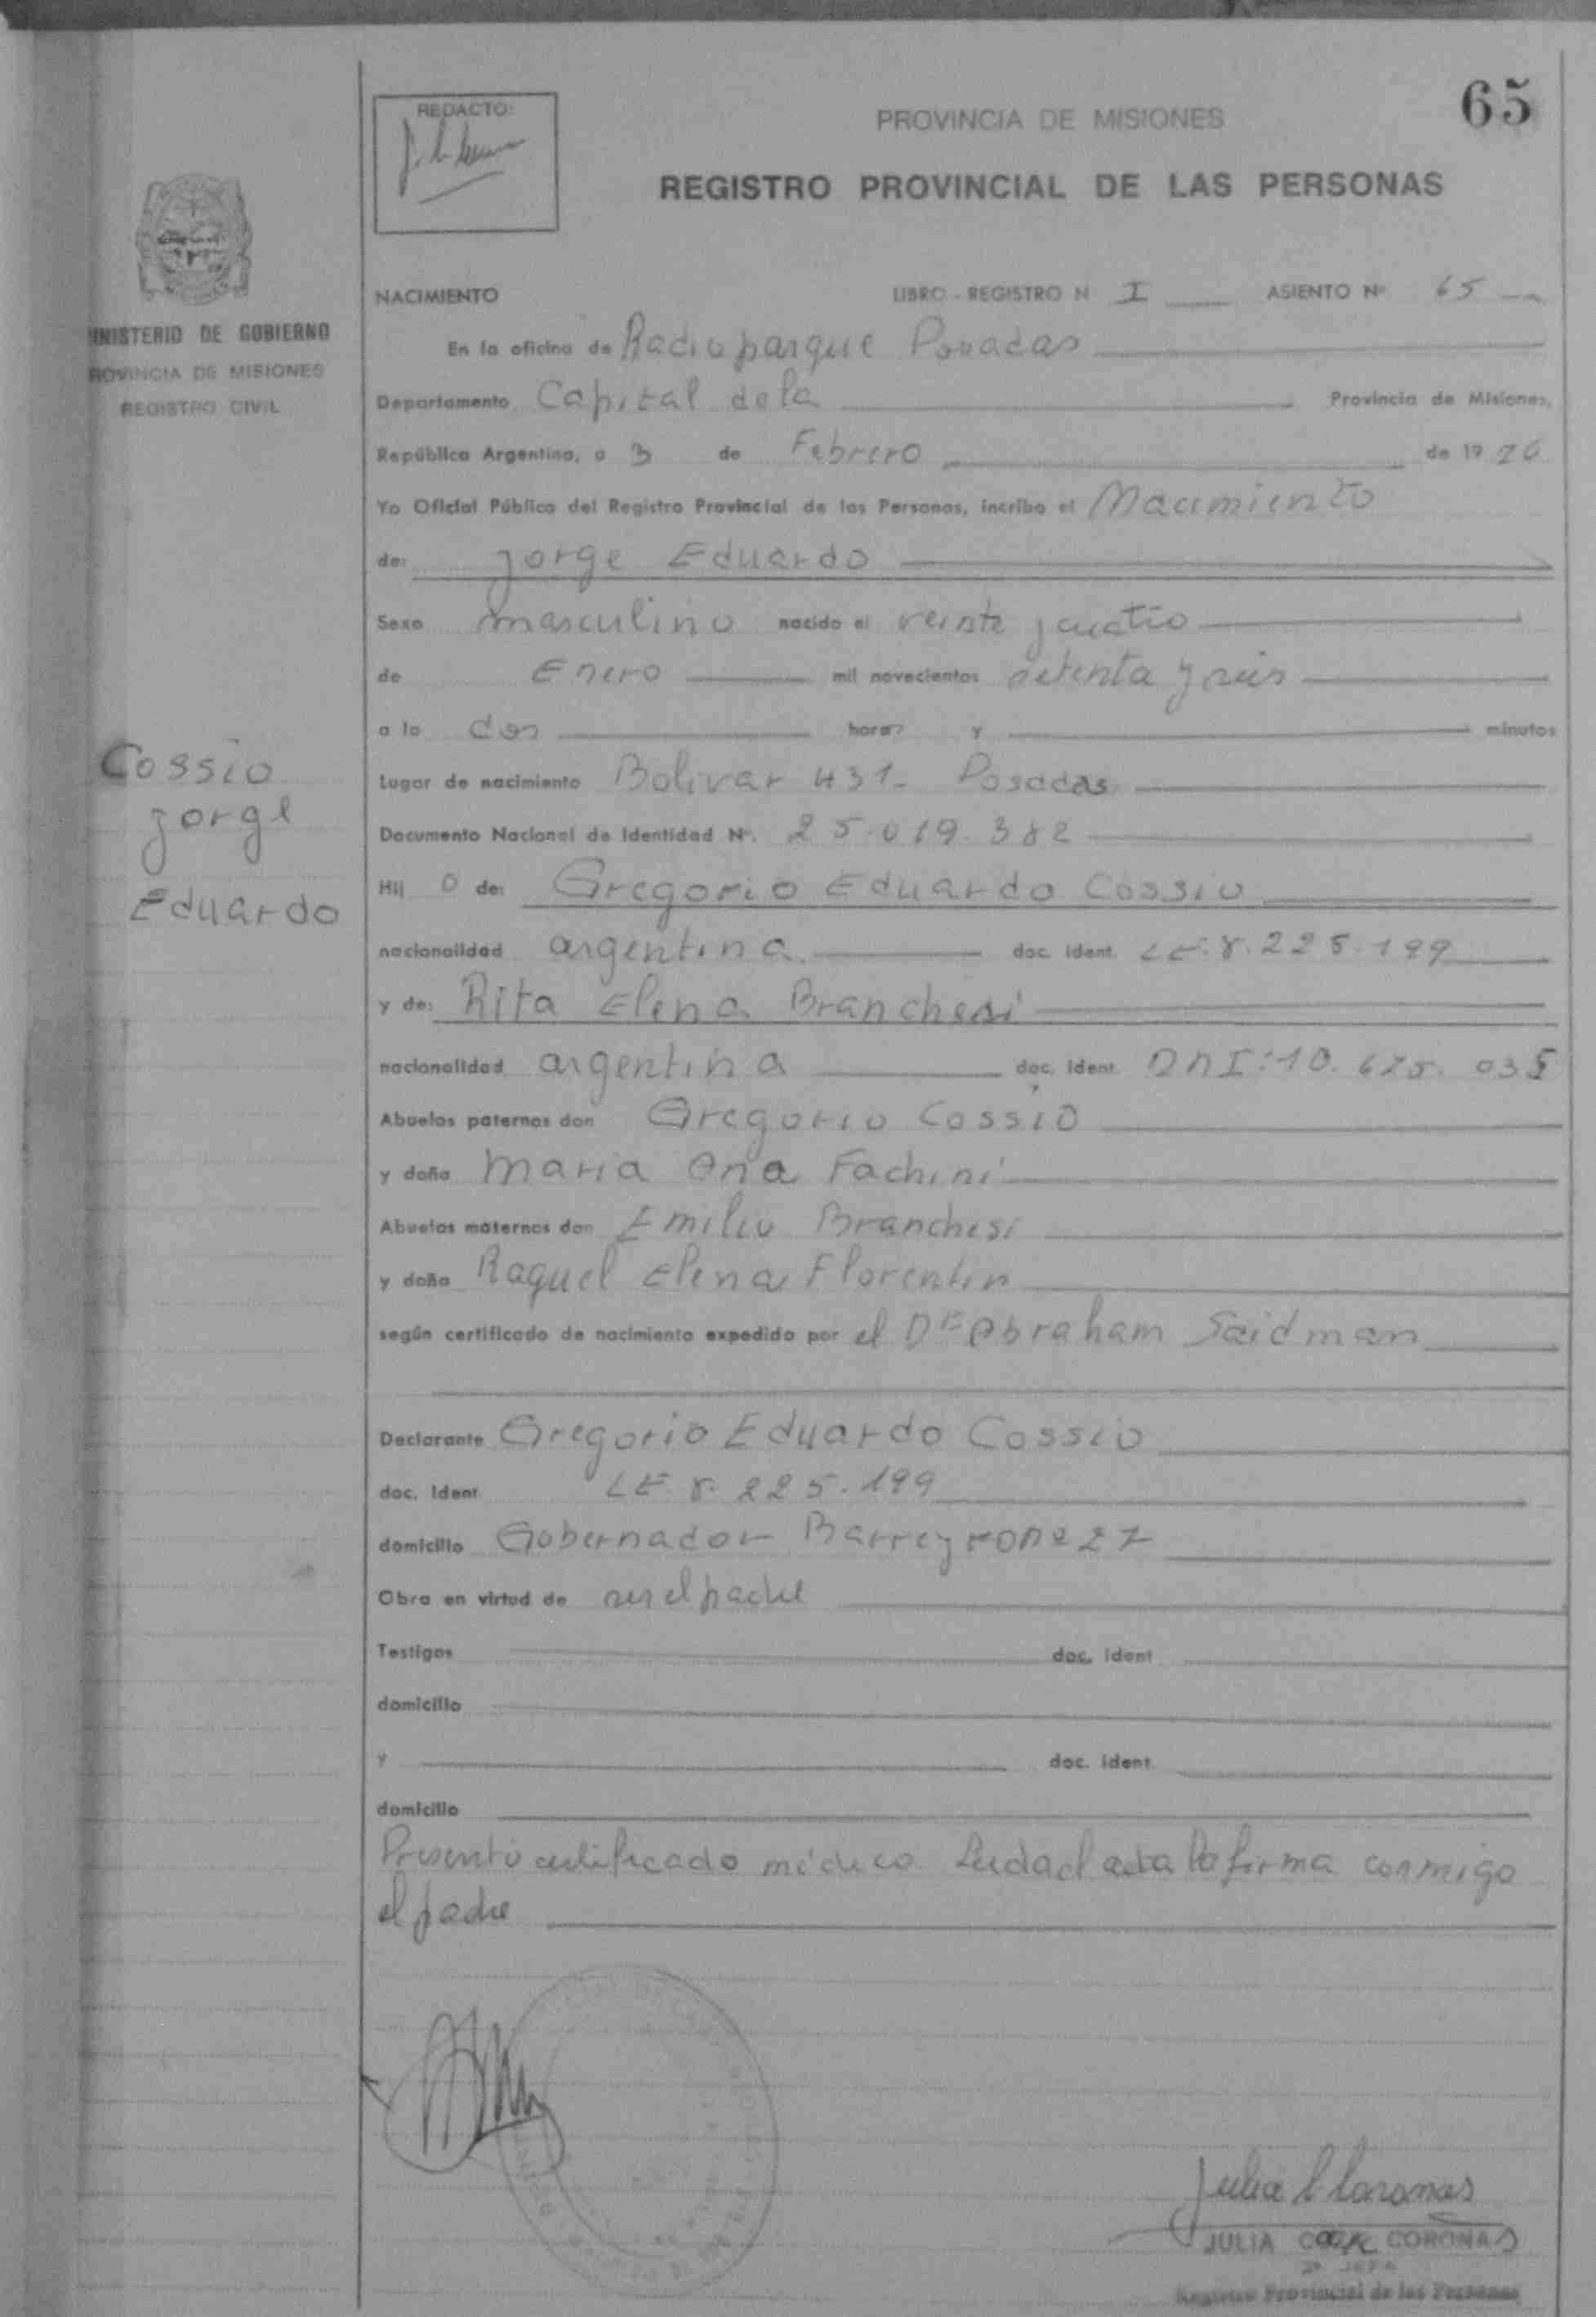 65
REDACTO:
PROVINCIA DE MISIONES
REGISTRO PROVINCIAL DE LAS PERSONAS
MINISTERIO DE GOBIERNO
PROVINCIA DE MISIONES
REGISTRO CIVIL
NACIMIENTO LIBRO - REGISTRO N I ASIENTO Nº 65
En la oficina de Radioparque Posadas
Departamento Capital de la Provincia de Misiones,
República Argentina, a 3 de Febrero de 19 76
Yo Oficial Público del Registro Provincial de las Personas, incribo el Nacimiento
de: Jorge Eduardo
Sexo masculino nacido el veinte y cuatro
de Enero mil novecientos setenta y seis
a la dos horas y minutos
Lugar de nacimiento Bolivar 431- Posadas
Documento Nacional de Identidad Nº. 25.019.382
Cossio
Jorge
Eduardo
Hij o de: Gregorio Eduardo Cossio
nacionalidad argentina doc. ident. LE. 8.225.199
y de: Rita Elena Branchesi
nacionalidad argentina doc. ident. DNI: 10.675.035
Abuelos paternos don Gregorio Cossio
y doña Maria Ana Fachini
Abuelos maternos don Emilio Branchesi
y doña Raquel Elena Florentin
según certificado de nacimiento expedido por el Dr Abraham Saidman
Declarante Gregorio Eduardo Cossio
doc. Ident LE. 8.225.199
domicilio Gobernador Barreyro Nº 227
Obra en virtud de ser el padre
Testigos doc. ident
domicilio
y doc. ident.
domicilio
Presentó certificado médico Leida el acta la firma conmigo
el padre
JULIA CORONAS
Registro Provincial de las Personas